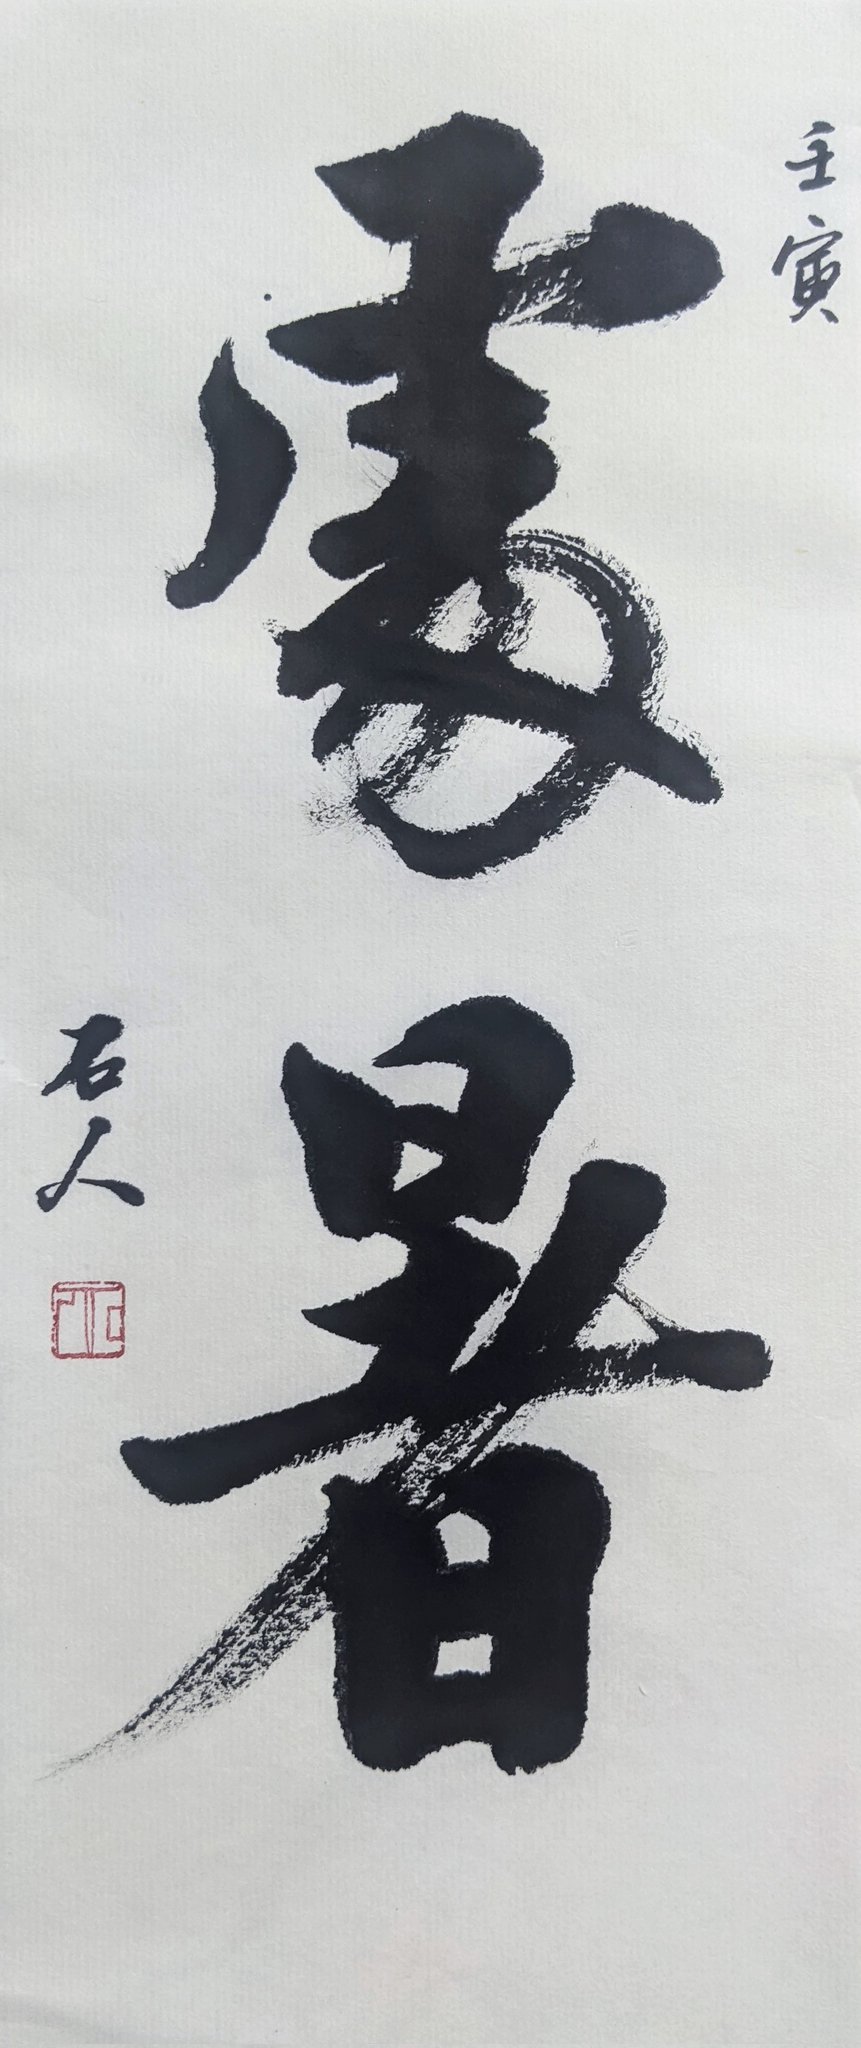 壬寅
處暑
石人